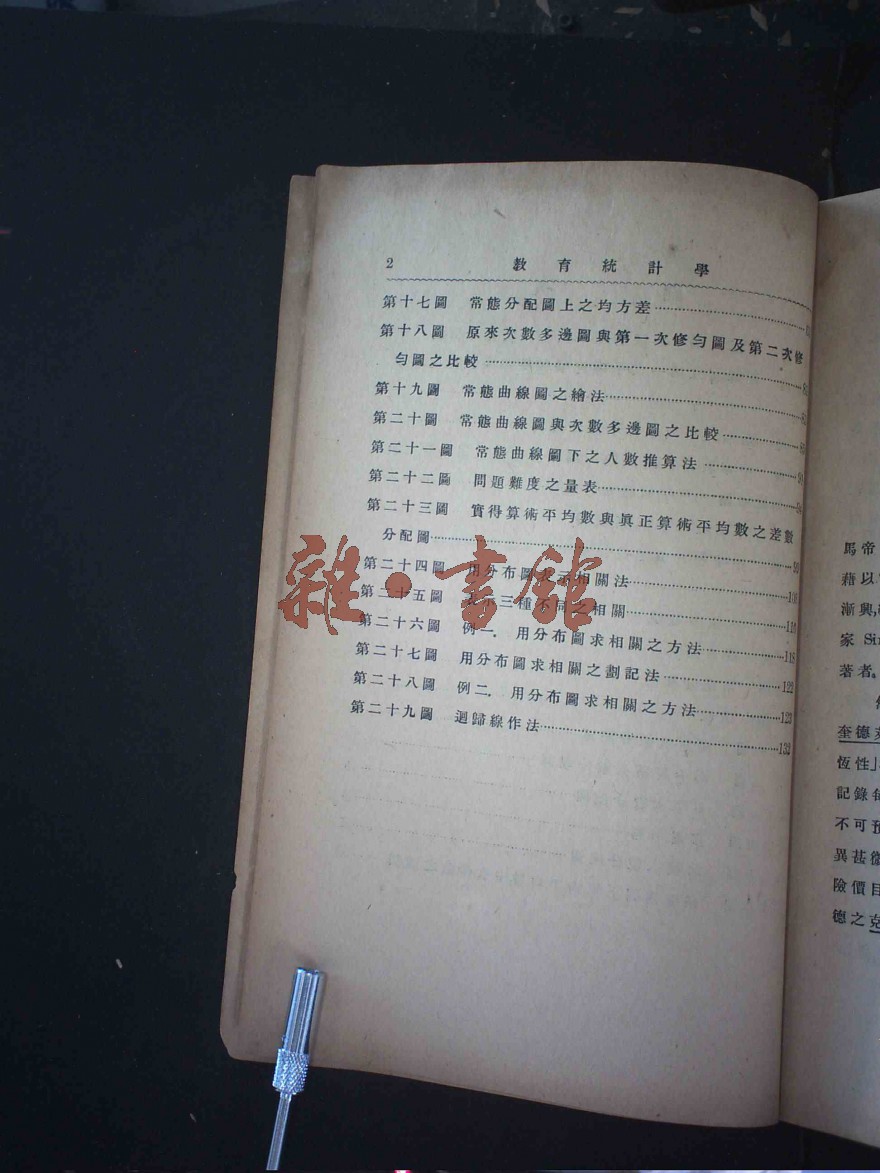 2 教育統計學
第十七圖 常態分配圖上之均方差
第十八圖 原來次數多邊圖與第一次修勻圖及第二次修
勻圖之比較
第十九圖 常態曲線圖之繪法
第二十圖 常態曲線圖與次數多邊圖之比較
第二十一圖 常態曲線圖下之人數推算法
第二十二圖 問題難度之量表
第二十三圖 實得算術平均數與眞正算術平均數之差數
分配圖
第二十四圖 用分布圖表示相關法
第二十五圖 表示三種不同之相關
第二十六圖 例一. 用分布圖求相關之方法 118
第二十七圖 用分布圖求相關之劃記法 122
第二十八圖 例二. 用分布圖求相關之方法 123
第二十九圖 迴歸線作法 132
雜·書館
馬帝
藉以
漸興,
家
著者。
奎德
恆性」
記錄每
不可預
異甚微
險價目
德之克